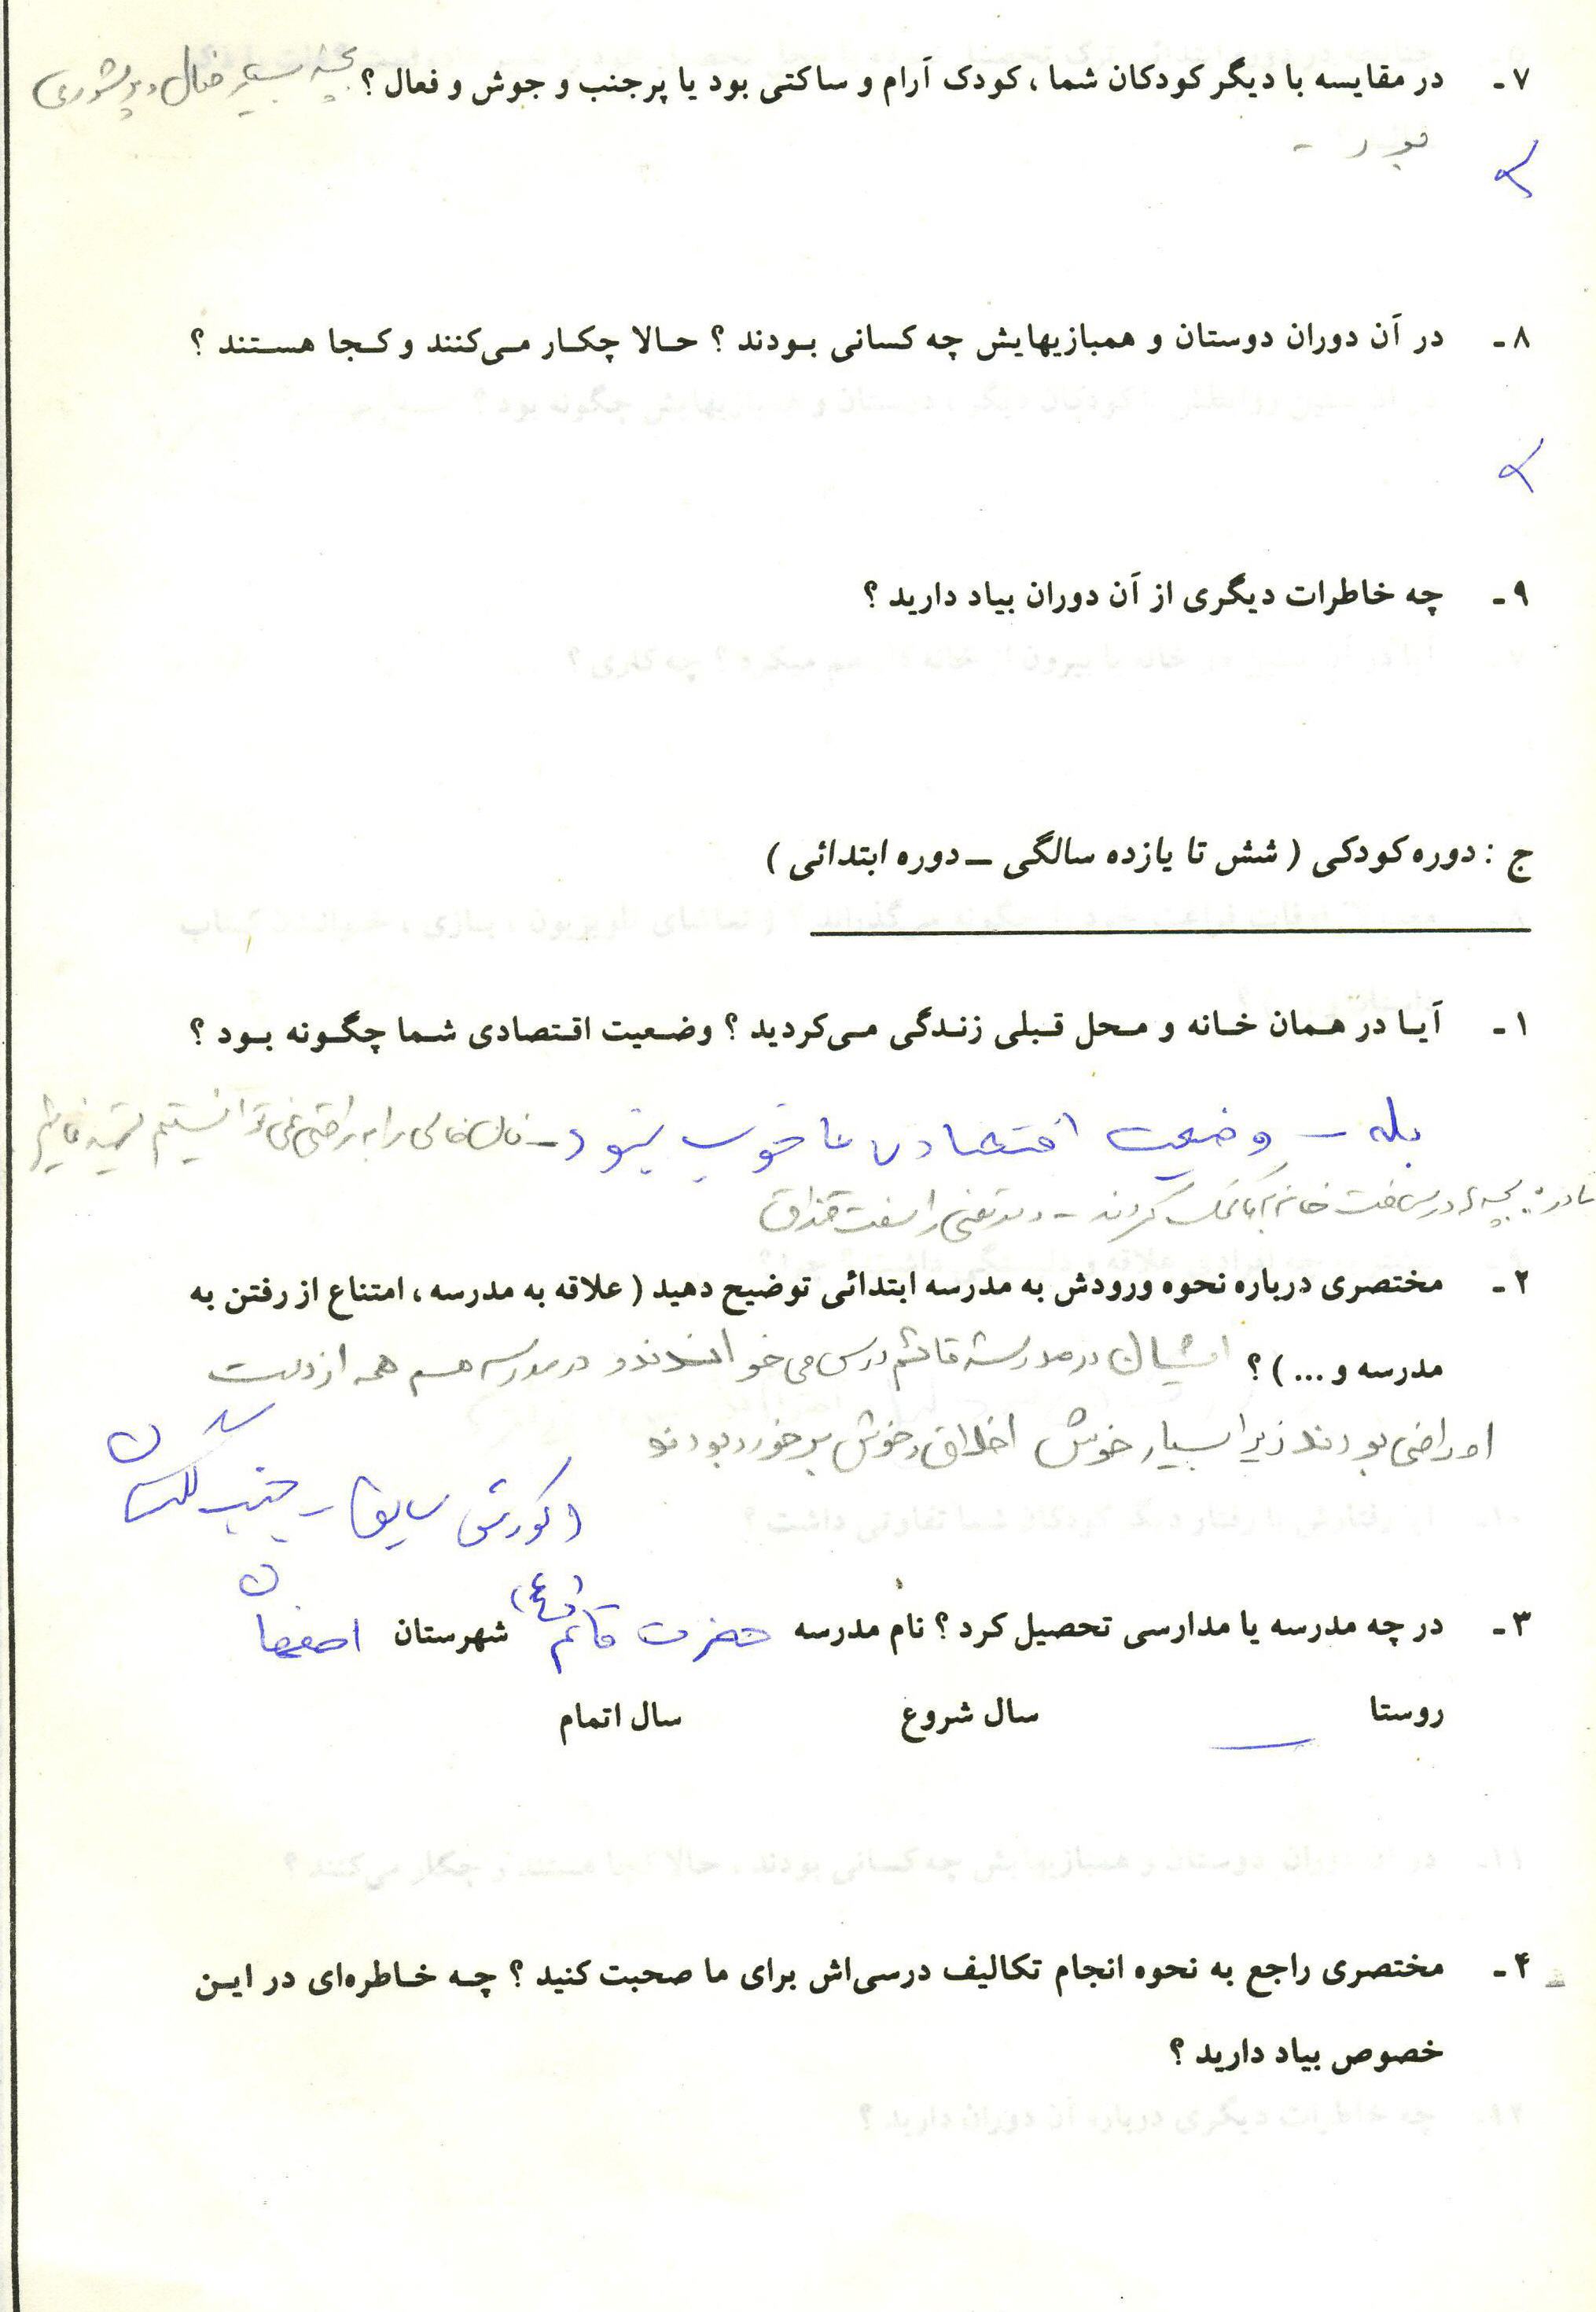 ۷ـ در مقایسه با دیگر کودکان شما ، کودک آرام و ساکتی بود یا پرجنب و جوش و فعال ؟ بچه بسیار فعال و پرشوری
بود -
۸ـ در آن دوران دوستان و همبازیهایش چه کسانی بودند ؟ حالا چکار می‌کنند و کجا هستند ؟
۹ـ چه خاطرات دیگری از آن دوران بیاد دارید ؟
ج : دوره کودکی ( شش تا یازده سالگی ــ دوره ابتدائی )
۱ـ آیا در همان خانه و محل قبلی زندگی می‌کردید ؟ وضعیت اقتصادی شما چگونه بود ؟
بله - وضعیت اقتصادی ما خوب نبود - نان خالی را به راحتی نمی توانستیم تهیه نمائیم
مادر و بچه‌ها در
۲ـ مختصری درباره نحوه ورودش به مدرسه ابتدائی توضیح دهید ( علاقه به مدرسه ، امتناع از رفتن به
مدرسه و ... ) ؟ ایشان در مدرسه قائم درس می خواندند و در مدرسه هم همه از دست
او راضی بودند زیرا بسیار خوش اخلاق و خوش برخورد بودند
( کورش سابق - جنب
۳ـ در چه مدرسه یا مدارسی تحصیل کرد ؟ نام مدرسه حضرت قائم (عج) شهرستان اصفهان
روستا — سال شروع سال اتمام
۴ـ مختصری راجع به نحوه انجام تکالیف درسی‌اش برای ما صحبت کنید ؟ چه خاطره‌ای در این
خصوص بیاد دارید ؟